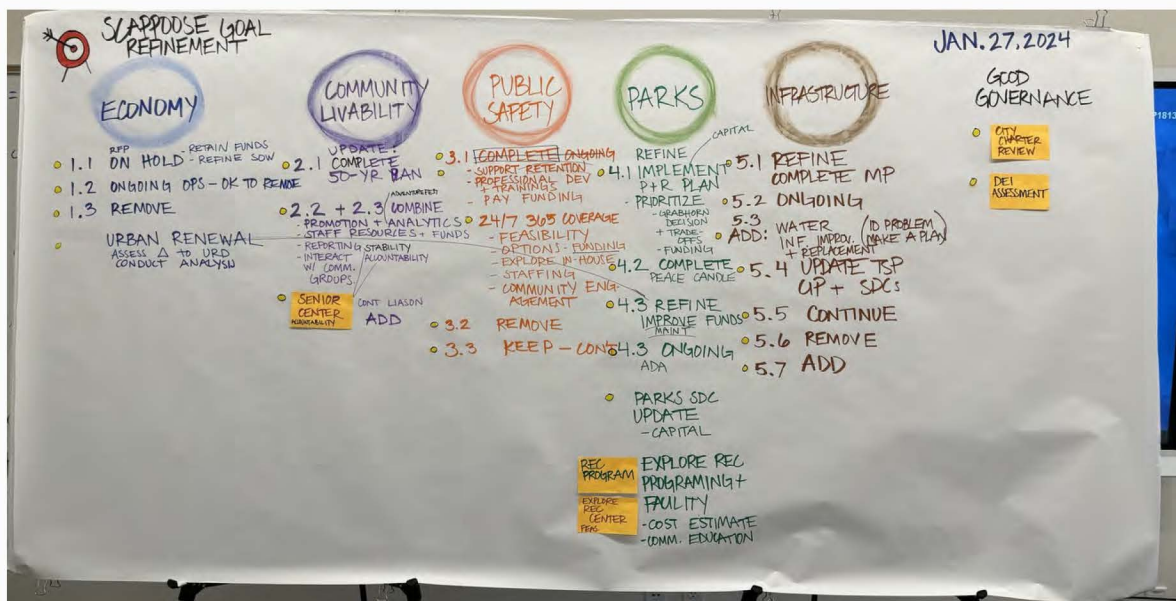 SCAPPOOSE GOAL
REFINEMENT
JAN. 27, 2024
ECONOMY
RFP
- RETAIN FUNDS
1.1 ON HOLD - REFINE SOW
1.2 ONGOING OPS - OK TO
1.3 REMOVE
URBAN RENEWAL
ASSESS Δ TO URD
CONDUCT ANALYSIS
COMMUNITY
LIVABILITY
UPDATE:
2.1 COMPLETE
50-YR PLAN
2.2 + 2.3 COMBINE
- PROMOTION + ANALYTICS
- STAFF RESOURCES + FUNDS
- REPORTING
- INTERACT
W/ COMM.
GROUPS
STABILITY
ACOUNTABILITY
SENIOR
CENTER
CONT LIASON
ADD
PUBLIC
SAFETY
3.1 COMPLETE ONGOING
- SUPPORT RETENTION
- PROFESSIONAL DEV
+ TRAININGS
- PAY FUNDING
24/7 365 COVERAGE
- FEASIBILITY
- OPTIONS - FUNDING
- EXPLORE IN-HOUSE
- STAFFING
- COMMUNITY ENG-
AGEMENT
3.2 REMOVE
3.3 KEEP - CONT
PARKS
CAPITAL
REFINE
4.1 IMPLEMENT
P+R PLAN
- PRIORITIZE
- GRABHORN
DECISION
+ TRADE-
OFFS
- FUNDING
4.2 COMPLETE
PEACE CANDLE
4.3 REFINE
IMPROVE FUNDS
MAINT
4.3 ONGOING
ADA
PARKS SDC
UPDATE
- CAPITAL
REC
PROGRAM
EXPLORE
REC
CENTER
FEAS
EXPLORE REC
PROGRAMING +
FAULITY
- COST ESTIMATE
- COMM. EDUCATION
INFRASTRUCTURE
5.1 REFINE
COMPLETE MP
5.2 ONGOING
5.3
ADD: WATER
INF IMPROV.
+ REPLACEMENT
(ID PROBLEM
MAKE A PLAN)
5.4 UPDATE TSP
CIP + SDCs
5.5 CONTINUE
5.6 REMOVE
5.7 ADD
GOOD
GOVERNANCE
CITY
CHARTER
REVIEW
DEI
ASSESSMENT